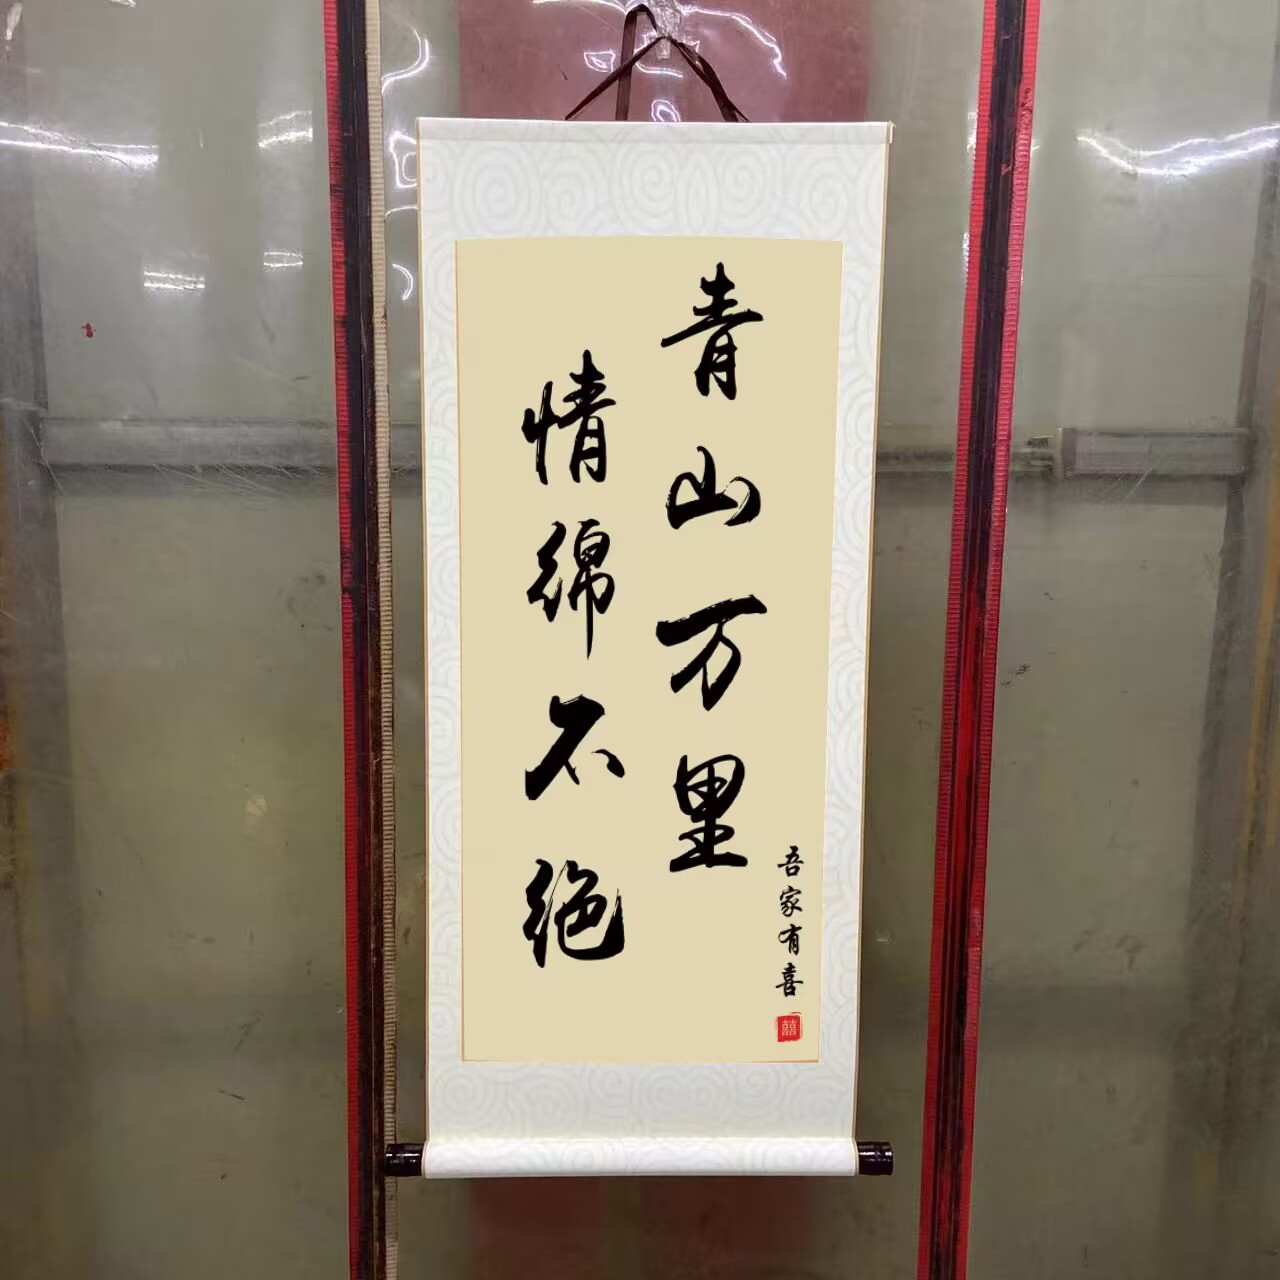 青山万里
情绵不绝
吾家有喜
囍